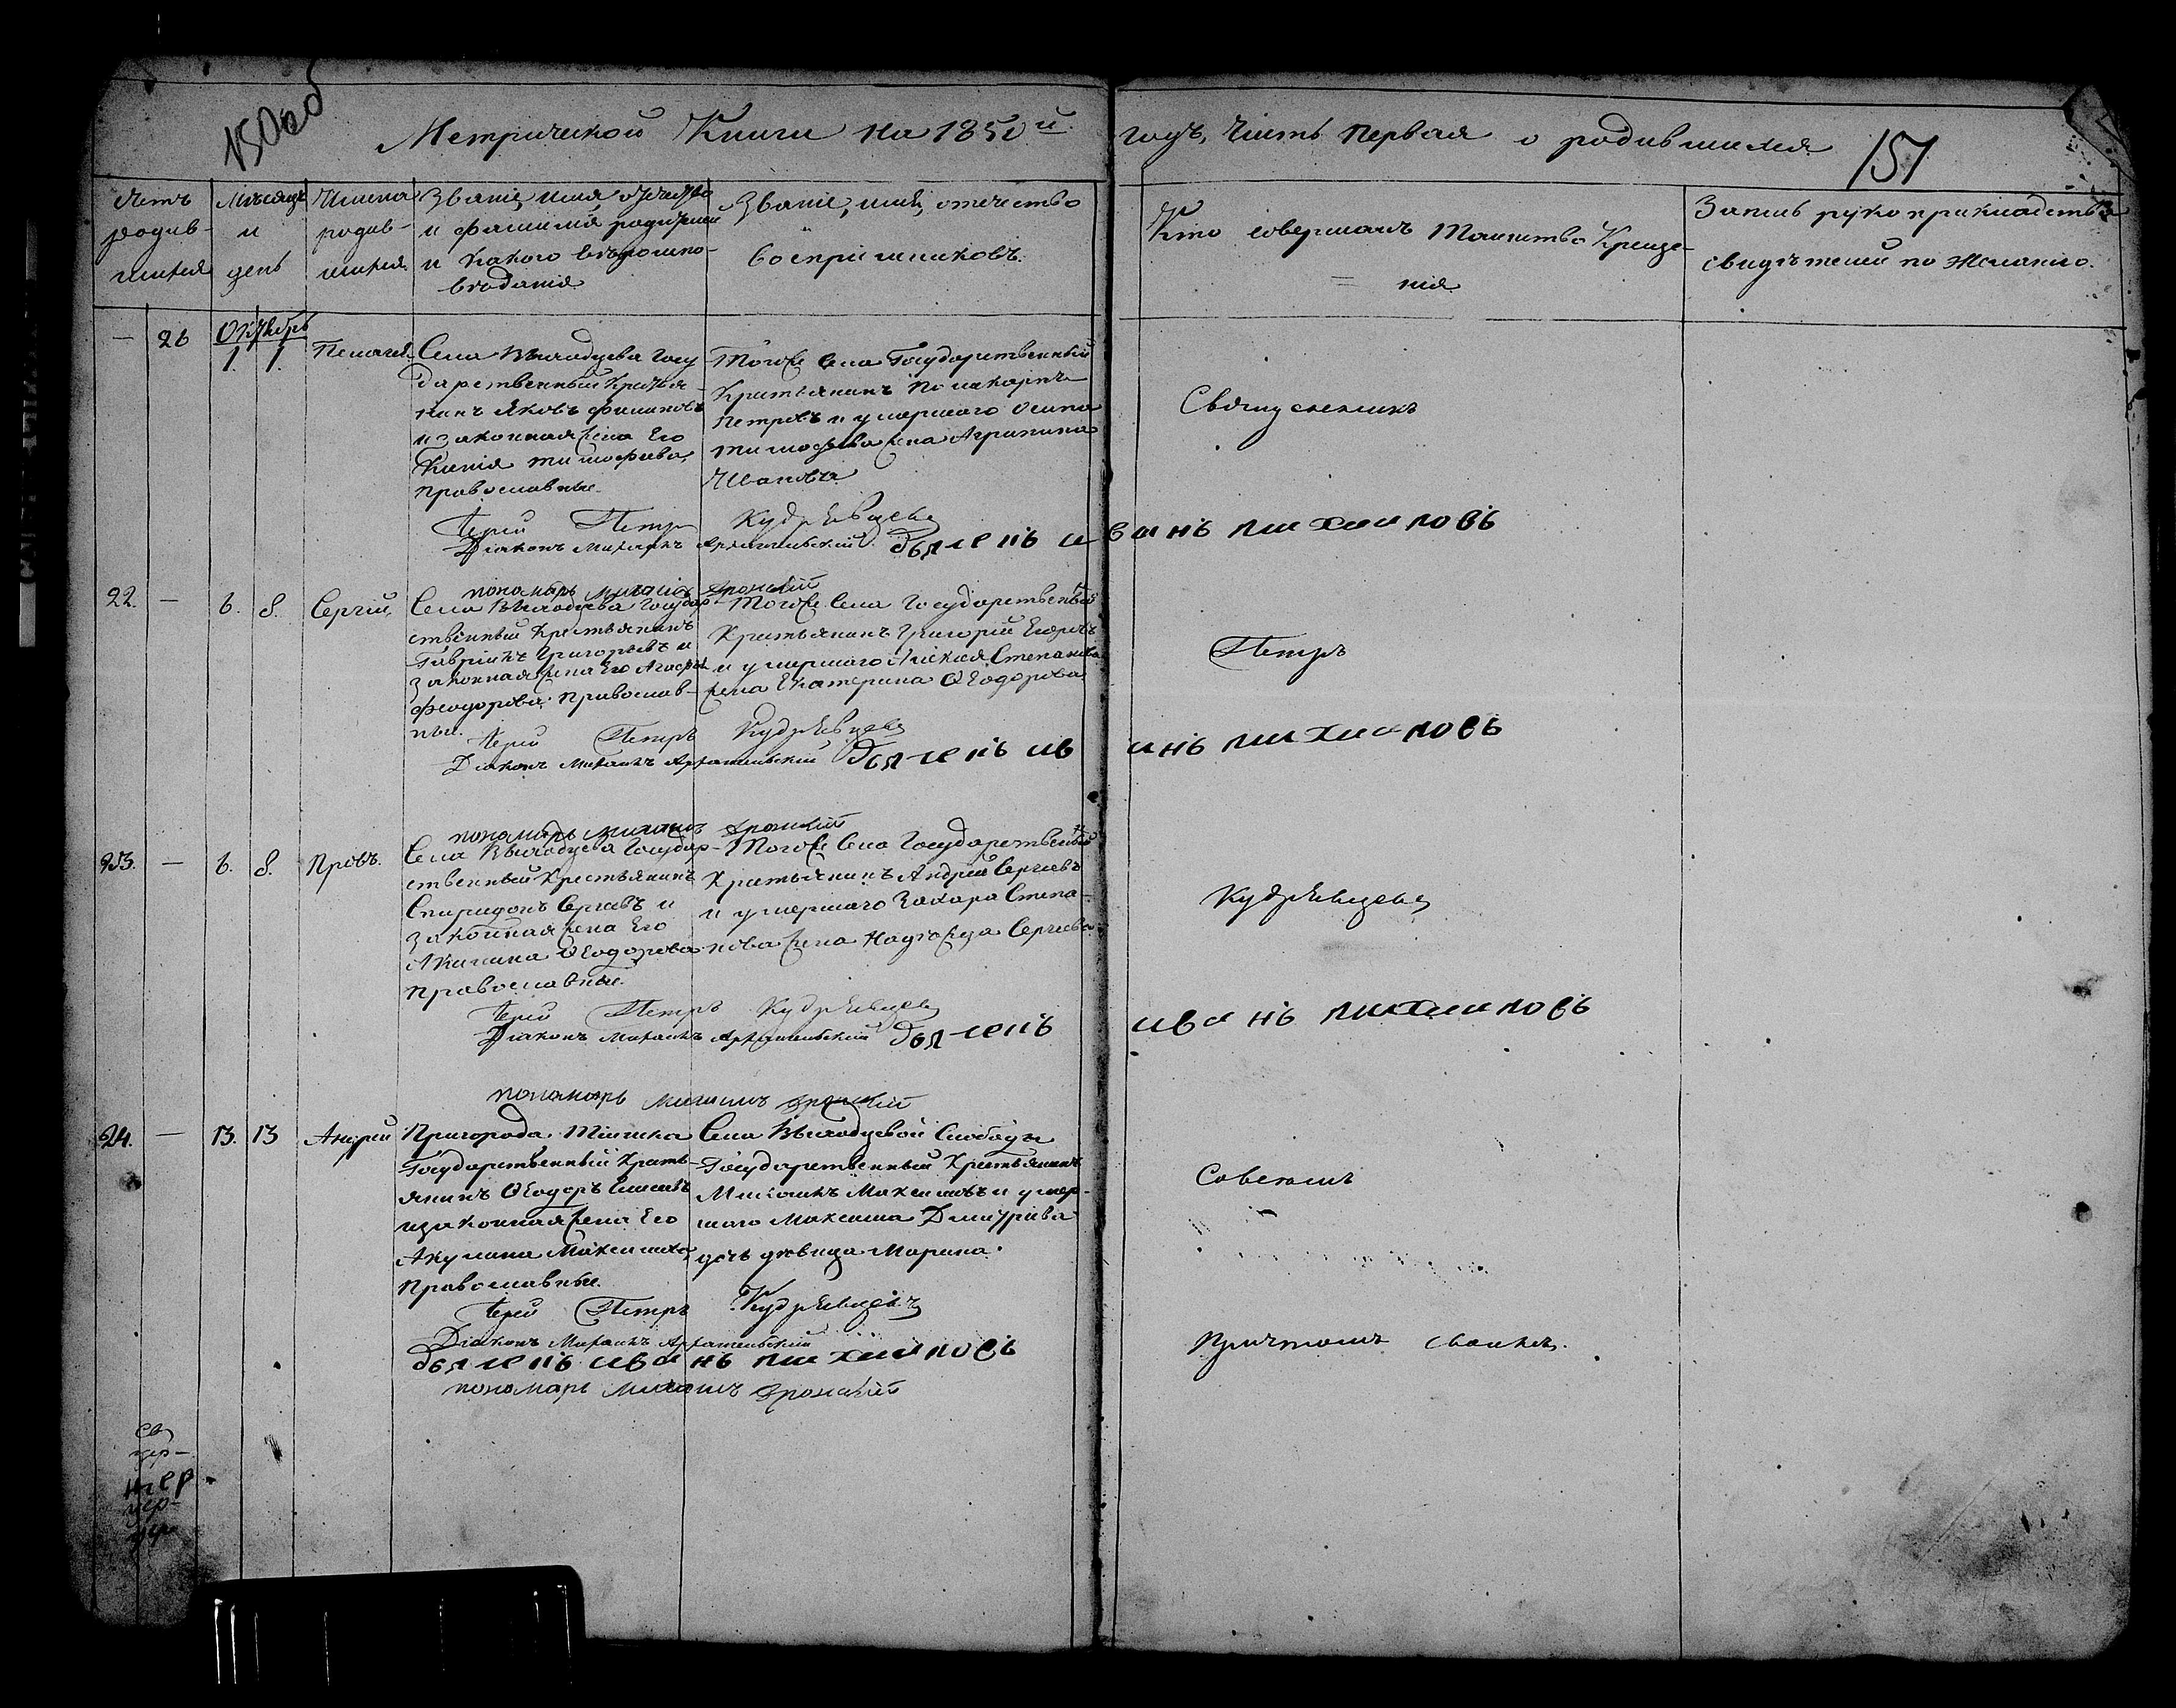 150об
Метрической Книги на 1850й годъ, Часть Первая о родившихся
151
Счетъ родив-
шихся
Мѣсяцъ
и
день
Имена
родив-
шихся
Званіе, имя, отчество
и фамилія родителей
и какого вѣроиспо-
вѣданія
Званіе, имя, отечество
воспріемниковъ.
Кто совершалъ Таинство Креще-
нія
Запись рукоприкладства
свидѣтелей по желанію.
— 26
Октябрь
1. 1.
Пелагея
Села Выходцева Госу
дарственный Крестья-
нинъ Яковъ Филиповъ
и законная жена Его
Ксенія Тимофеева,
Православные.
Тогоже села Государственный
Крестьянинъ Поликарпъ
Петровъ и умершаго Осипа
Тимофеева жена Агрипина
Иванова
Іерей Петръ Кудрявцевъ
Діаконъ Михаилъ Архангельский дьячекъ иванъ михаиловъ
пономарь Михаилъ
22. — 6. 8. Сергій,
Села Выходцева Государ-
ственный Крестьянинъ
Гавріилъ Григорьевъ и
законная жена Его Агафья
Феодорова. Православ-
ные.
Тогоже Села Государственный
Крестьянинъ Григорій Егоровъ
и умершаго Алексея Степанова
жена Екатерина Ѳеодорова
Іерей Петръ Кудрявцевъ
Діаконъ Михаилъ Архангельский дьячекъ иванъ михаиловъ
пономарь Михаилъ
23. — 6. 8. Провъ.
Села Выходцева Государ-
ственный Крестьянинъ
Спиридонъ Сергѣевъ и
законная жена Его
Акилина Ѳеодорова
Православные.
Тогоже Села Государственный
Крестьянинъ Андрей Сергѣевъ
и умершаго Захара Степа-
нова жена Надѣжда Сергѣева
Іерей Петръ Кудрявцевъ
Діаконъ Михаилъ Архангельский дьячекъ иванъ михаиловъ
пономарь Михаилъ
24. — 13. 13 Андрей
Пригорода Тіинска
Государственный Кресть-
янинъ Ѳеодоръ
и законная жена Его
Акулина Максимова,
Православные.
Села Выходцевой Слободы
Государственный Крестьянинъ
Максимовъ и умер-
шаго Максима Дмитріева
дочь дѣвица Марина.
Іерей Петръ Кудрявцевъ
Діаконъ Михаилъ Архангельский
дьячекъ иванъ михаиловъ
пономарь Михаилъ
Священникъ
Петръ
Кудрявцевъ
Со всемъ
Причтомъ своимъ.